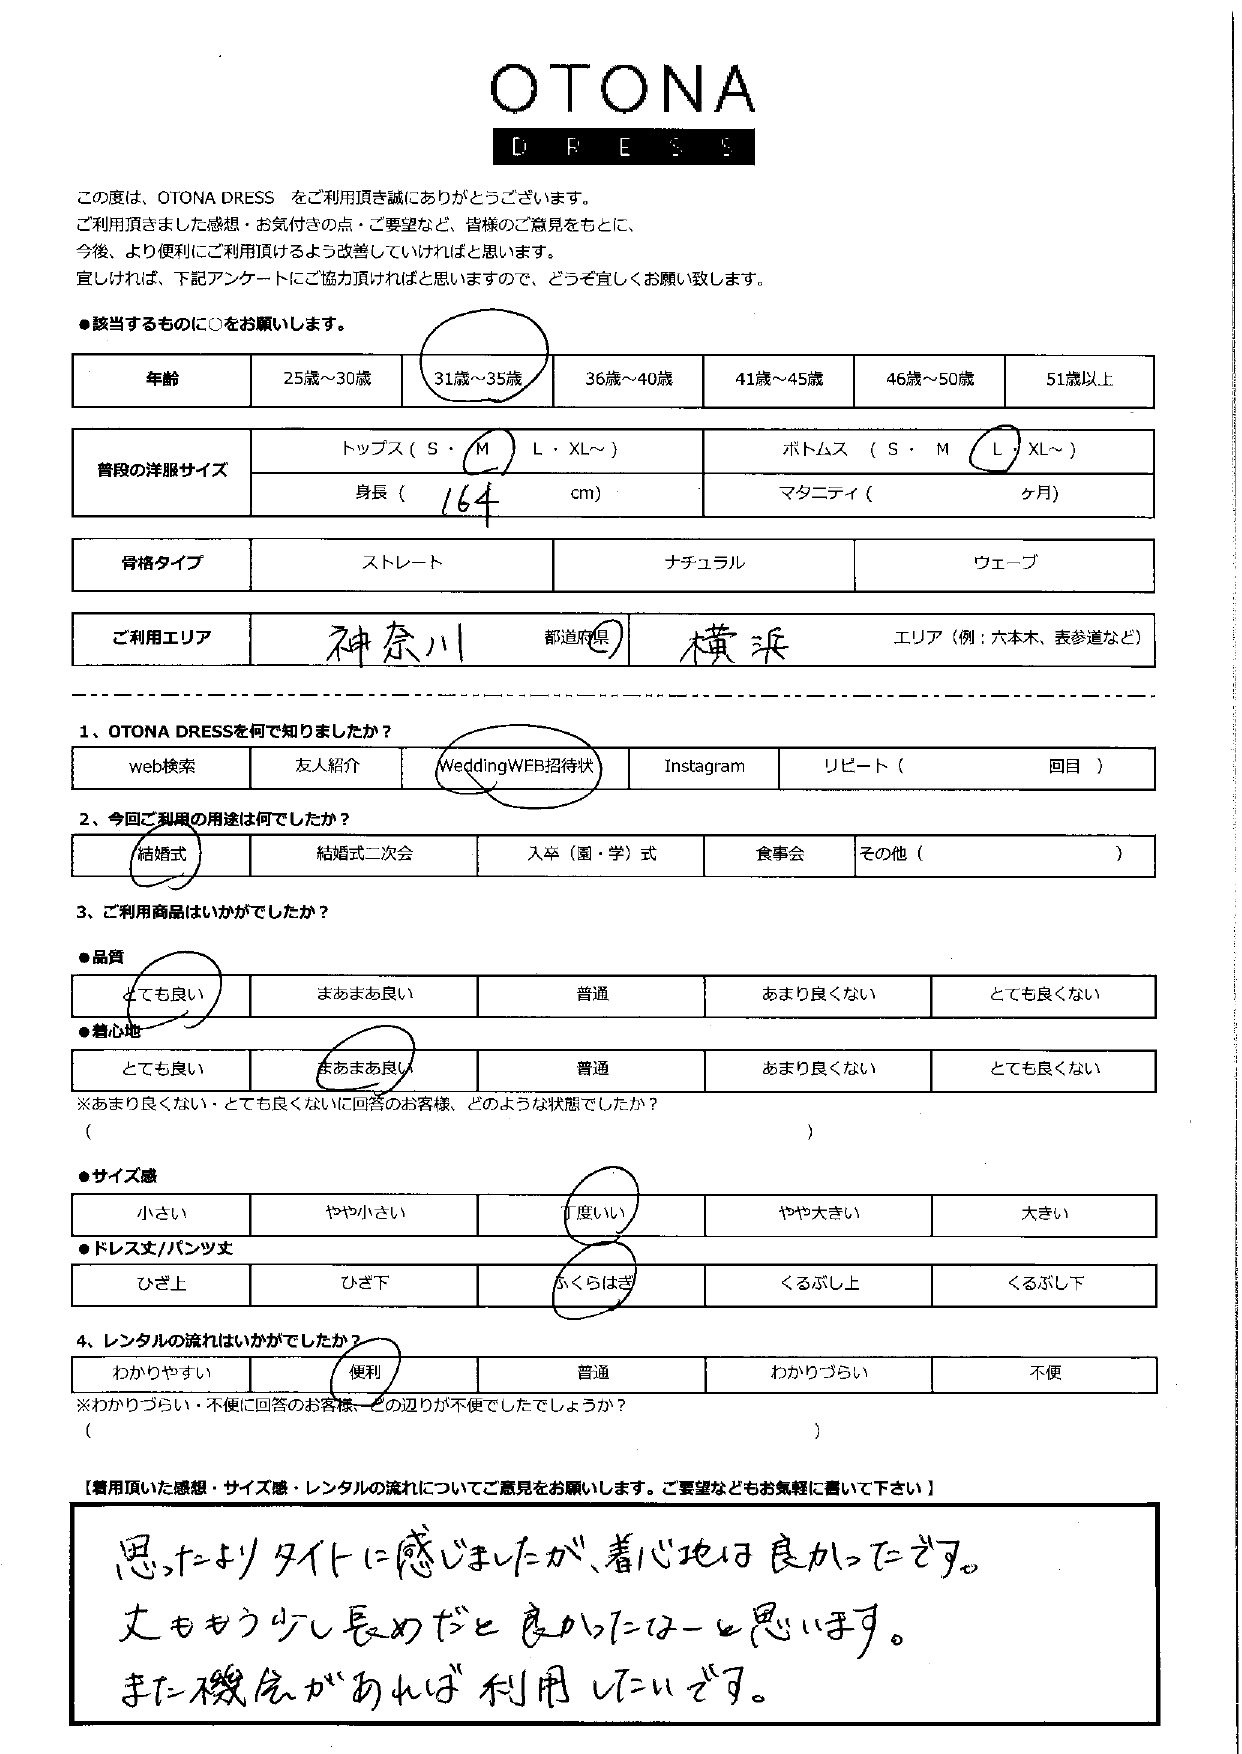 OTONA
DRESS
この度は、OTONA DRESS　をご利用頂き誠にありがとうございます。
ご利用頂きました感想・お気付きの点・ご要望など、皆様のご意見をもとに、
今後、より便利にご利用頂けるよう改善していければと思います。
宜しければ、下記アンケートにご協力頂ければと思いますので、どうぞ宜しくお願い致します。
●該当するものに○をお願いします。
年齢 25歳～30歳 31歳～35歳 36歳～40歳 41歳～45歳 46歳～50歳 51歳以上
普段の洋服サイズ トップス ( S ・ M L ・ XL～ ) ボトムス ( S ・ M L ・ XL～ )
身長 ( 164 cm) マタニティ ( ヶ月)
骨格タイプ ストレート ナチュラル ウェーブ
ご利用エリア 神奈川 都道府県 横浜 エリア（例：六本木、表参道など）
1、OTONA DRESSを何で知りましたか？
web検索 友人紹介 WeddingWEB招待状 Instagram リピート（ 回目 ）
2、今回ご利用の用途は何でしたか？
結婚式 結婚式二次会 入卒（園・学）式 食事会 その他（ ）
3、ご利用商品はいかがでしたか？
●品質
とても良い まあまあ良い 普通 あまり良くない とても良くない
●着心地
とても良い まあまあ良い 普通 あまり良くない とても良くない
※あまり良くない・とても良くないに回答のお客様、どのような状態でしたか？
( )
●サイズ感
小さい やや小さい 丁度いい やや大きい 大きい
●ドレス丈/パンツ丈
ひざ上 ひざ下 ふくらはぎ くるぶし上 くるぶし下
4、レンタルの流れはいかがでしたか？
わかりやすい 便利 普通 わかりづらい 不便
※わかりづらい・不便に回答のお客様、どの辺りが不便でしたでしょうか？
( )
【着用頂いた感想・サイズ感・レンタルの流れについてご意見をお願いします。ご要望などもお気軽に書いて下さい】
思ったよりタイトに感じましたが、着心地は良かったです。
丈ももう少し長めだと良かったなーと思います。
また機会があれば利用したいです。